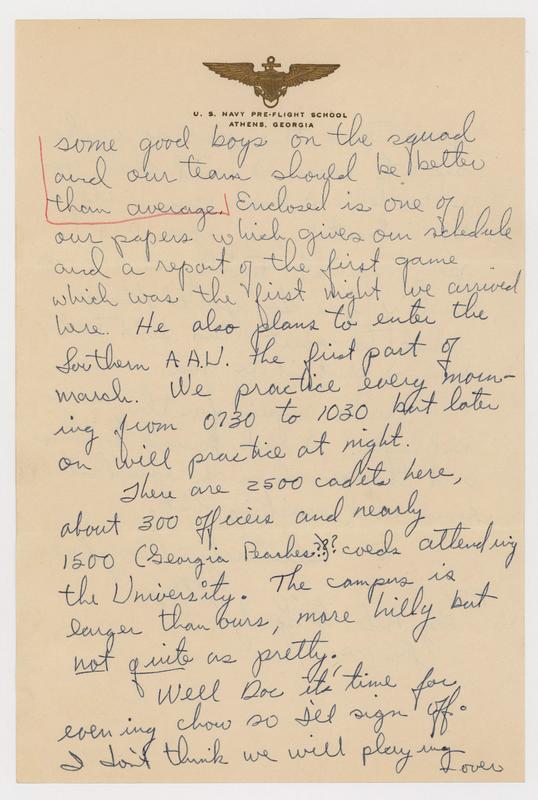 U. S. NAVY PRE-FLIGHT SCHOOL
ATHENS, GEORGIA
some good boys on the squad
and our team should be better
than average. Enclosed is one of
our papers which gives our schedule
and a report of the first game
which was the first night we arrived
here. He also plans to enter the
Southern A.A.U. the first part of
march. We practice every morn-
ing from 0730 to 1030 but later
on will practice at night.
There are 2500 cadets here,
about 300 officers and nearly
1500 (Georgia Peaches??? coeds attending
the University. The campus is
larger than ours, more hilly but
not quite as pretty.
Well Doc it's time for
evening chow so I'll sign off.
I don't think we will playing
over